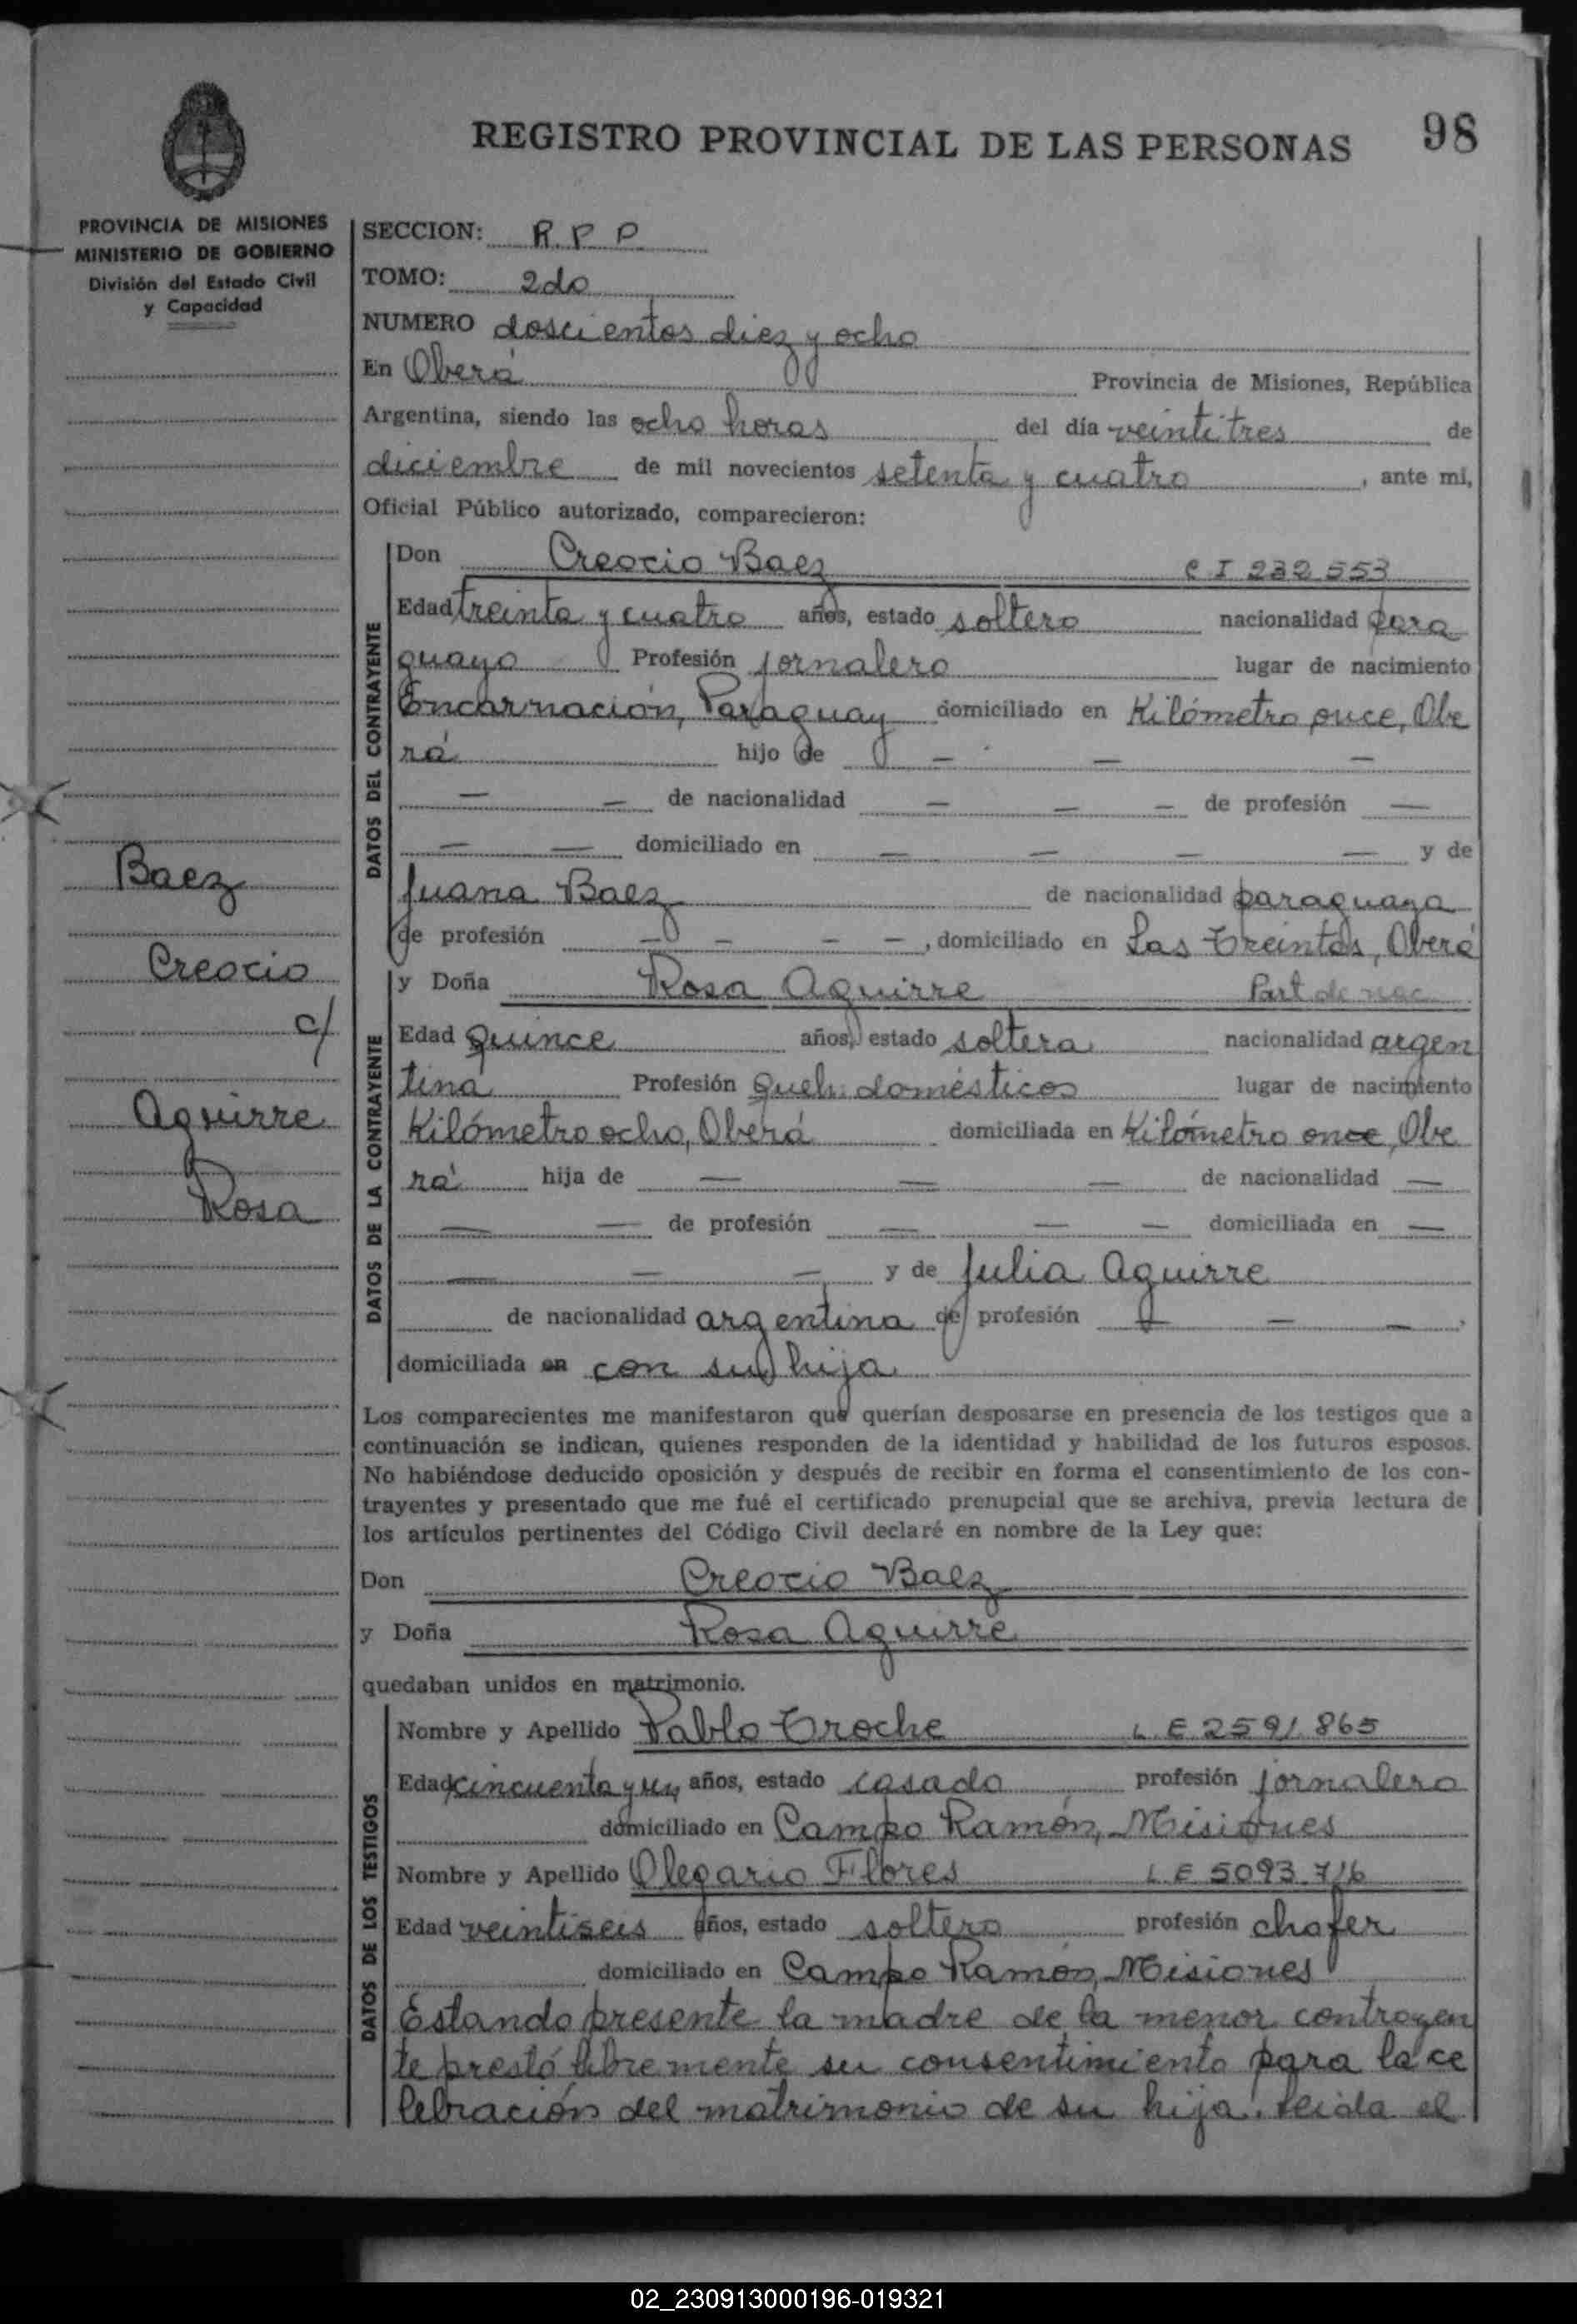 REGISTRO PROVINCIAL DE LAS PERSONAS 98
PROVINCIA DE MISIONES
MINISTERIO DE GOBIERNO
División del Estado Civil
y Capacidad
SECCION: R. P. P.
TOMO: 2do
NUMERO doscientos diez y ocho
En Oberá Provincia de Misiones, República
Argentina, siendo las ocho horas del día veintitres de
diciembre de mil novecientos setenta y cuatro, ante mi,
Oficial Público autorizado, comparecieron:
DATOS DEL CONTRAYENTE
Don Creocio Baez C I 232 553
Edad treinta y cuatro años, estado soltero nacionalidad para
guayo Profesión jornalero lugar de nacimiento
Encarnación, Paraguay domiciliado en Kilómetro once, Obe
rá hijo de — — —
— — de nacionalidad — — — de profesión —
— — domiciliado en — — — — y de
Juana Baez de nacionalidad paraguaya
de profesión — — — —, domiciliado en Las Treintas, Oberá
Baez
Creocio
c/
Aguirre
Rosa
DATOS DE LA CONTRAYENTE
y Doña Rosa Aguirre Part de nac
Edad quince años, estado soltera nacionalidad argen
tina Profesión Queh. domésticos lugar de nacimiento
Kilómetro ocho, Oberá domiciliada en Kilómetro once, Obe
rá hija de — — — de nacionalidad —
— — de profesión — — — domiciliada en —
— — — y de Julia Aguirre
de nacionalidad argentina de profesión — — —,
domiciliada en con su hija
Los comparecientes me manifestaron que querían desposarse en presencia de los testigos que a
continuación se indican, quienes responden de la identidad y habilidad de los futuros esposos.
No habiéndose deducido oposición y después de recibir en forma el consentimiento de los con-
trayentes y presentado que me fué el certificado prenupcial que se archiva, previa lectura de
los artículos pertinentes del Código Civil declaré en nombre de la Ley que:
Don Creocio Baez
y Doña Rosa Aguirre
quedaban unidos en matrimonio.
DATOS DE LOS TESTIGOS
Nombre y Apellido Pablo Troche L. E 2591 865
Edad cincuenta y un años, estado casado profesión jornalero
domiciliado en Campo Ramón, Misiones
Nombre y Apellido Olegario Flores L. E 5093.716
Edad veintiseis años, estado soltero profesión chofer
domiciliado en Campo Ramón, Misiones
Estando presente la madre de la menor contrayen
te prestó libremente su consentimiento para la ce
lebración del matrimonio de su hija. Leida el
02_230913000196-019321